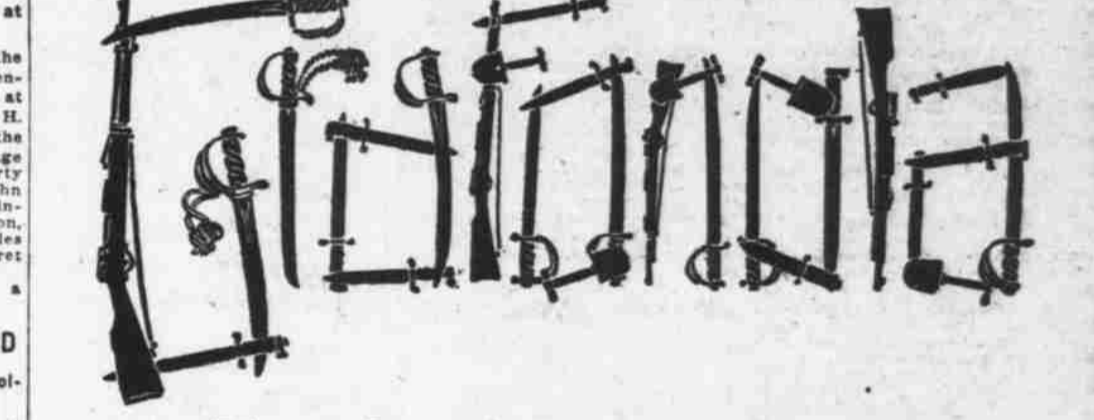 at
he
en-
at
H.
the
ge
rty
hn
in-
on,
les
ret
a
D
ol-
Grafonola